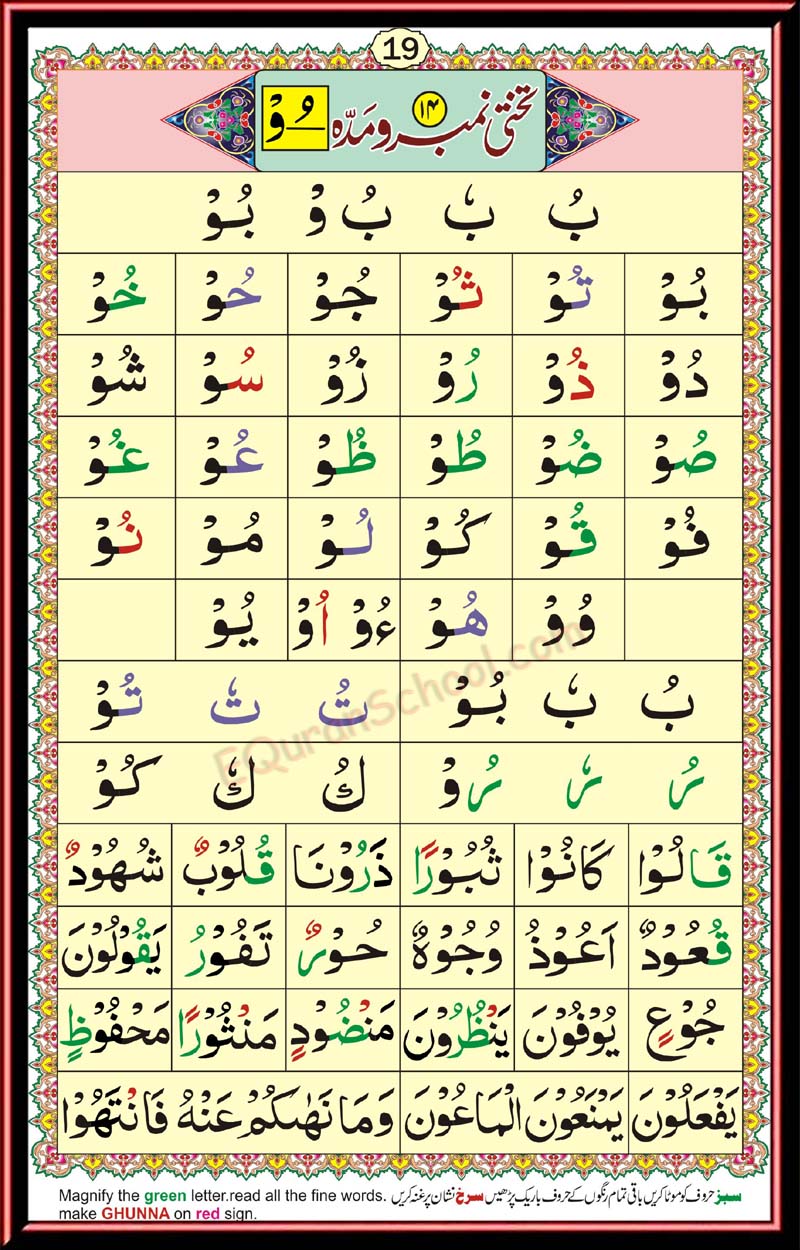 19
تختی نمبر ۱۴ و مَدّہ ـُوْ
بُ بٗ بُ وْ بُوْ
بُوْ تُوْ ثُوْ جُوْ حُوْ خُوْ
دُوْ ذُوْ رُوْ زُوْ سُوْ شُوْ
صُوْ ضُوْ طُوْ ظُوْ عُوْ غُوْ
فُوْ قُوْ كُوْ لُوْ مُوْ نُوْ
وُوْ هُوْ ءُوْ اُوْ يُوْ
بُ بٗ بُوْ تُ تٗ تُوْ
رُ رٗ رُوْ كُ كٗ كُوْ
قَالُوْا كَانُوْا ثُبُوْرًا ذَرُوْنَا قُلُوْبٌ شُهُوْدٌ
قُعُوْدٌ اَعُوْذُ وُجُوْهٌ حُوْرٌ تَفُوْرُ يَقُوْلُوْنَ
جُوْعٍ يُوْفُوْنَ يَنْظُرُوْنَ مَنْضُوْدٍ مَنْثُوْرًا مَحْفُوْظٍ
يَفْعَلُوْنَ يَمْنَعُوْنَ الْمَاعُوْنَ وَمَا نَهٰىكُمْ عَنْهُ فَانْتَهُوْا
EQuranSchool.com
Magnify the green letter.read all the fine words. سبز حروف کو موٹا کریں باقی تمام رنگوں کے حروف باریک پڑھیں سرخ نشان پر غنہ کریں
make GHUNNA on red sign.